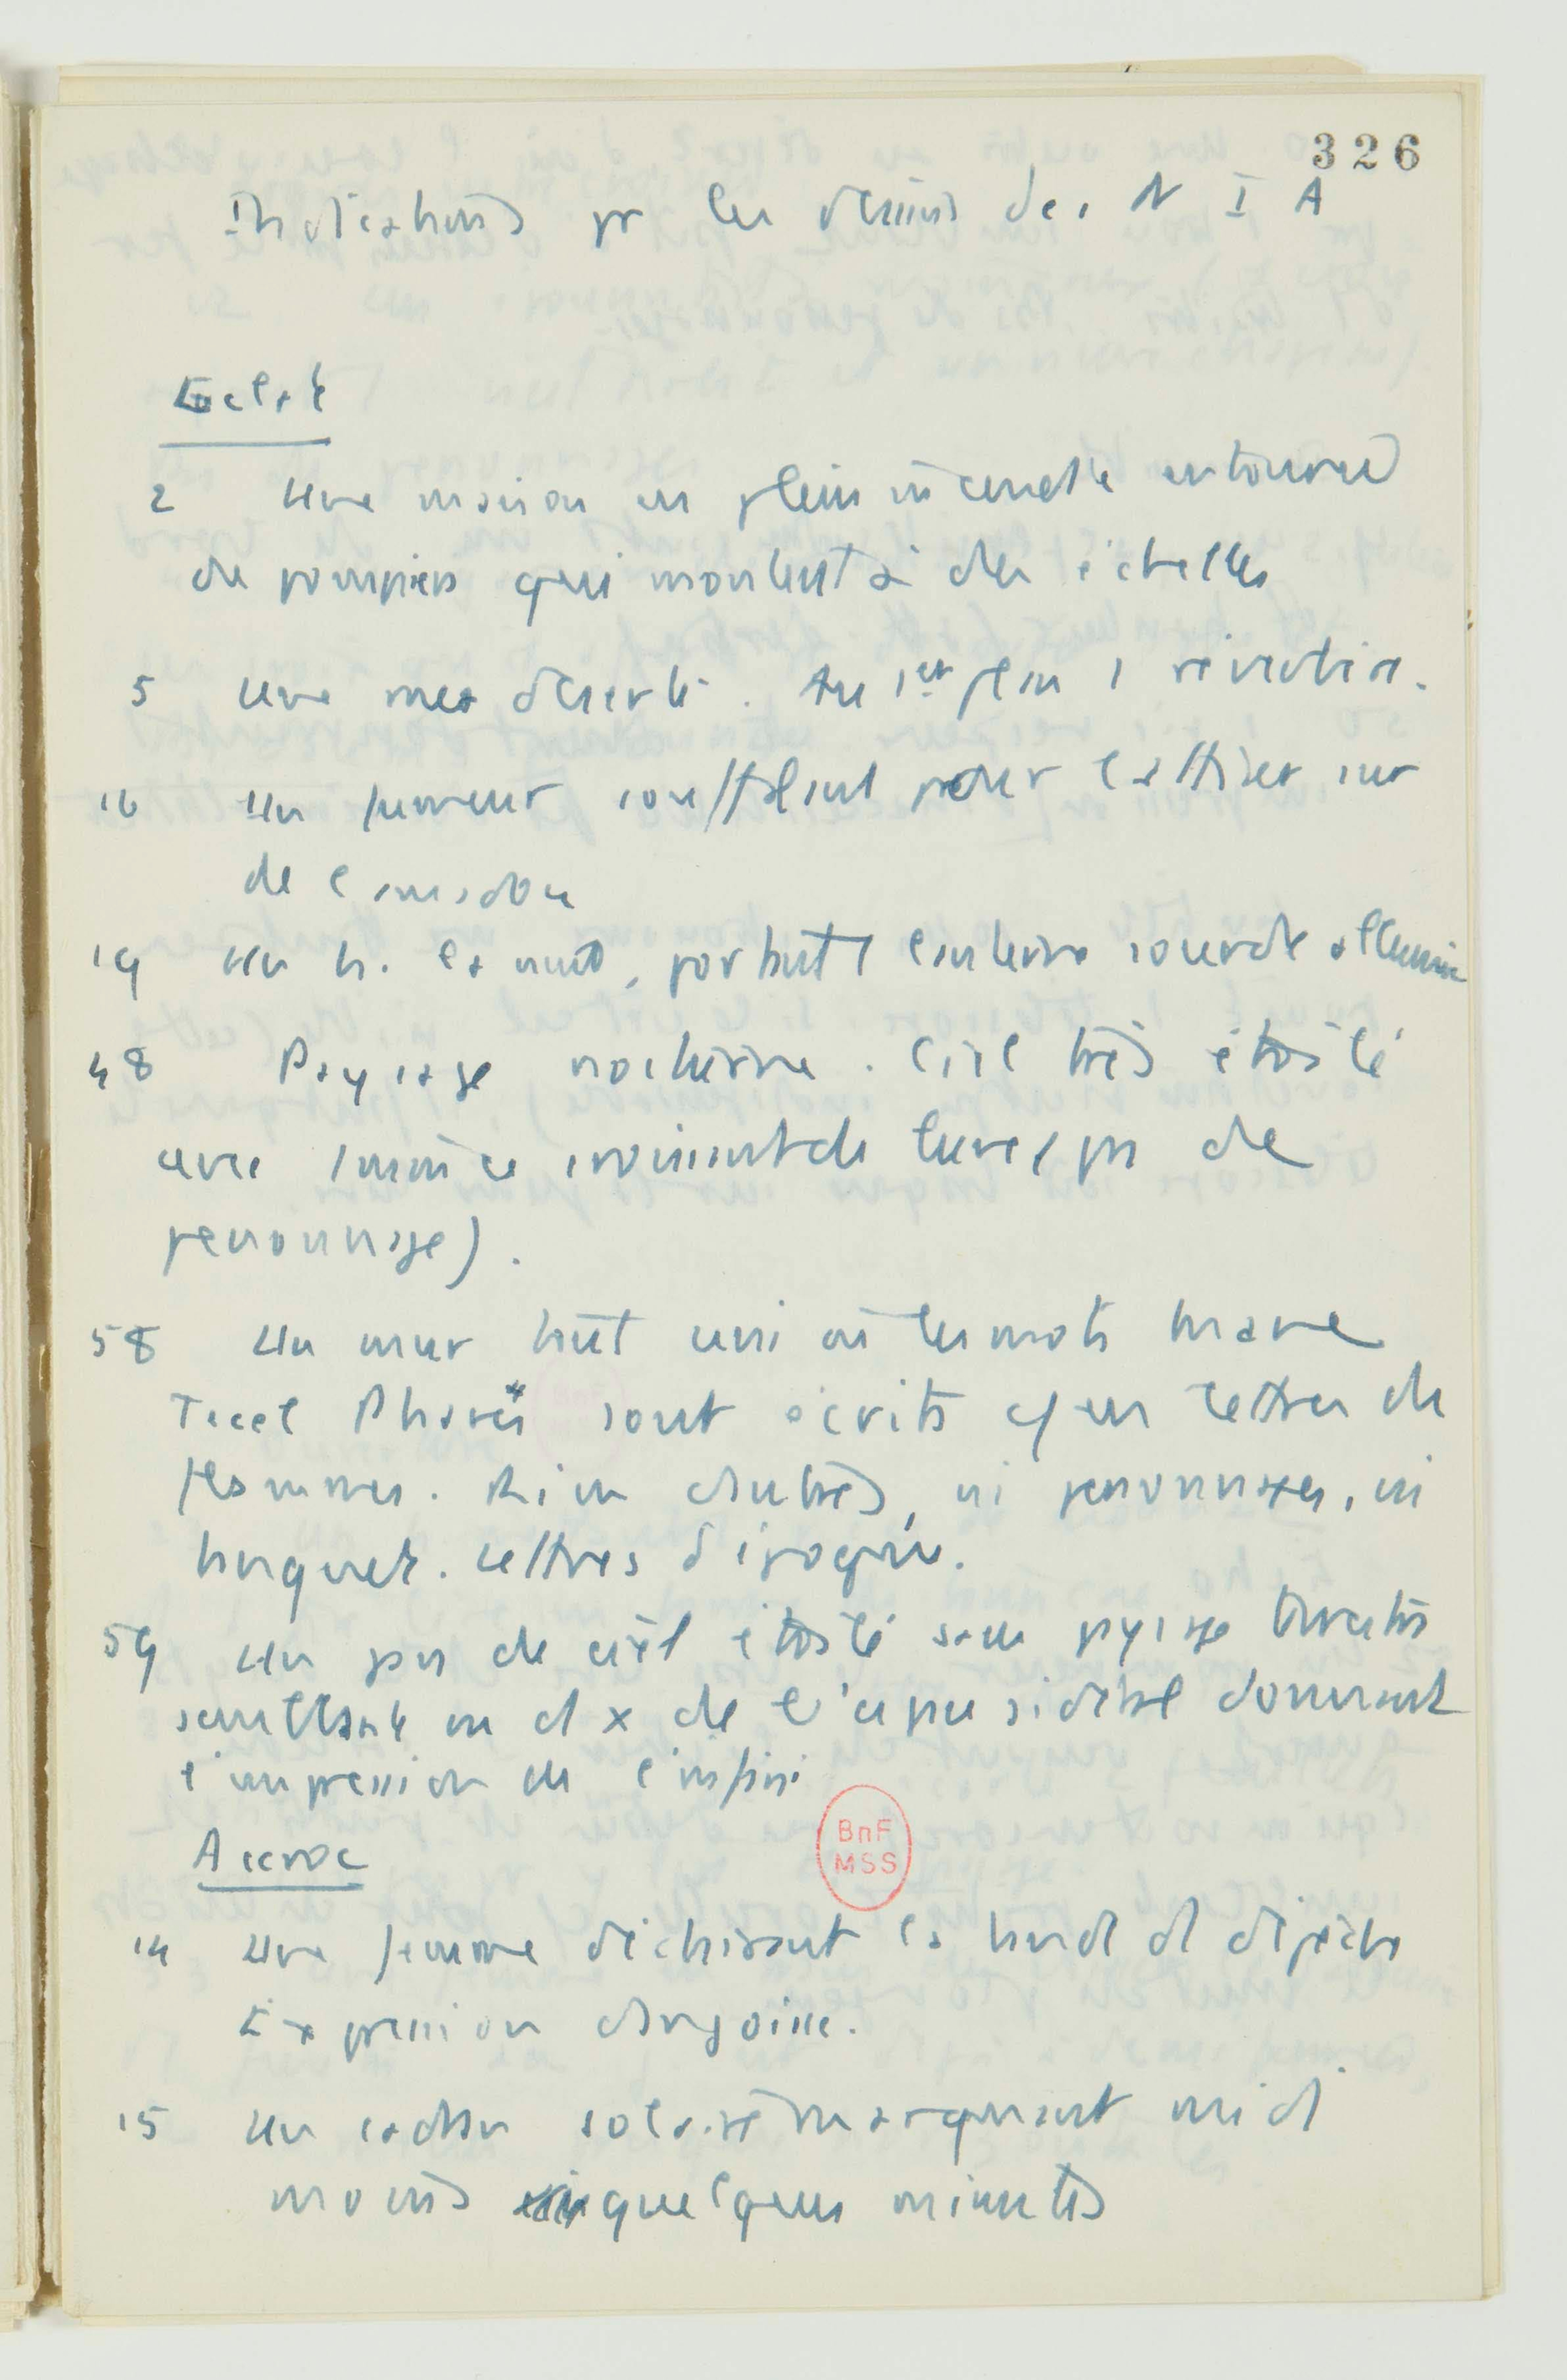 326
Indications pr les dessins des N I A
Eclat
2 Une maison en plein incendie entourée
de pompiers qui montent à des échelles
5 Une mer déserte. Au 1er plan 1 rivage
16 Un fumeur soufflant pour l'attiser sur
de l'amadou
19 Un h. la nuit, portant 1 lanterne sourde allumée
48 Paysage nocturne. Ciel très étoilé
avec mince croissant de lune (pas de
personnage).
58 Un mur tout uni où les mots Mane
Tecel Phares sont écrits en lettres de
flammes. Rien d'autres, ni personnages, ni
banquet. Lettres d'époque.
59 Un pan de ciel étoilé sans paysage
scintillante de l'espace sidéral donnant
l'impression de l'infini
BnF
MSS
Accroc
14 Une femme déchirant la bande d dépêche
Expression d'angoisse.
15 Un cadran solaire marquant midi
moins quelques minutes